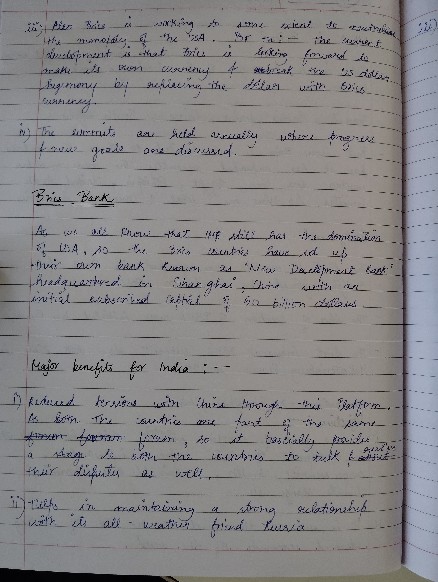 iii) Also Brics is working to some extent to neutralise
the monopoly of the USA. the current
development is that Brics is looking forward to
make its own currency & break the US dollar
hegemony by replacing the dollar with Brics
currency.
iv) The summits are held annually where progress
& new goals are discussed.
Brics Bank
As we all know that still has the domination
of USA, so the Brics countries have set up
their own bank known as "New Development Bank"
headquartered in Shanghai, China with an
initial subscribed capital of 50 billion dollars
Major benefits for India :--
i) Reduced tensions with China through this platform.
As both the countries are part of the same
forum, so it basically provides
a stage to both the countries to talk &
their disputes as well.
ii) Helps in maintaining a strong relationship
with its all-weather friend Russia
iii)